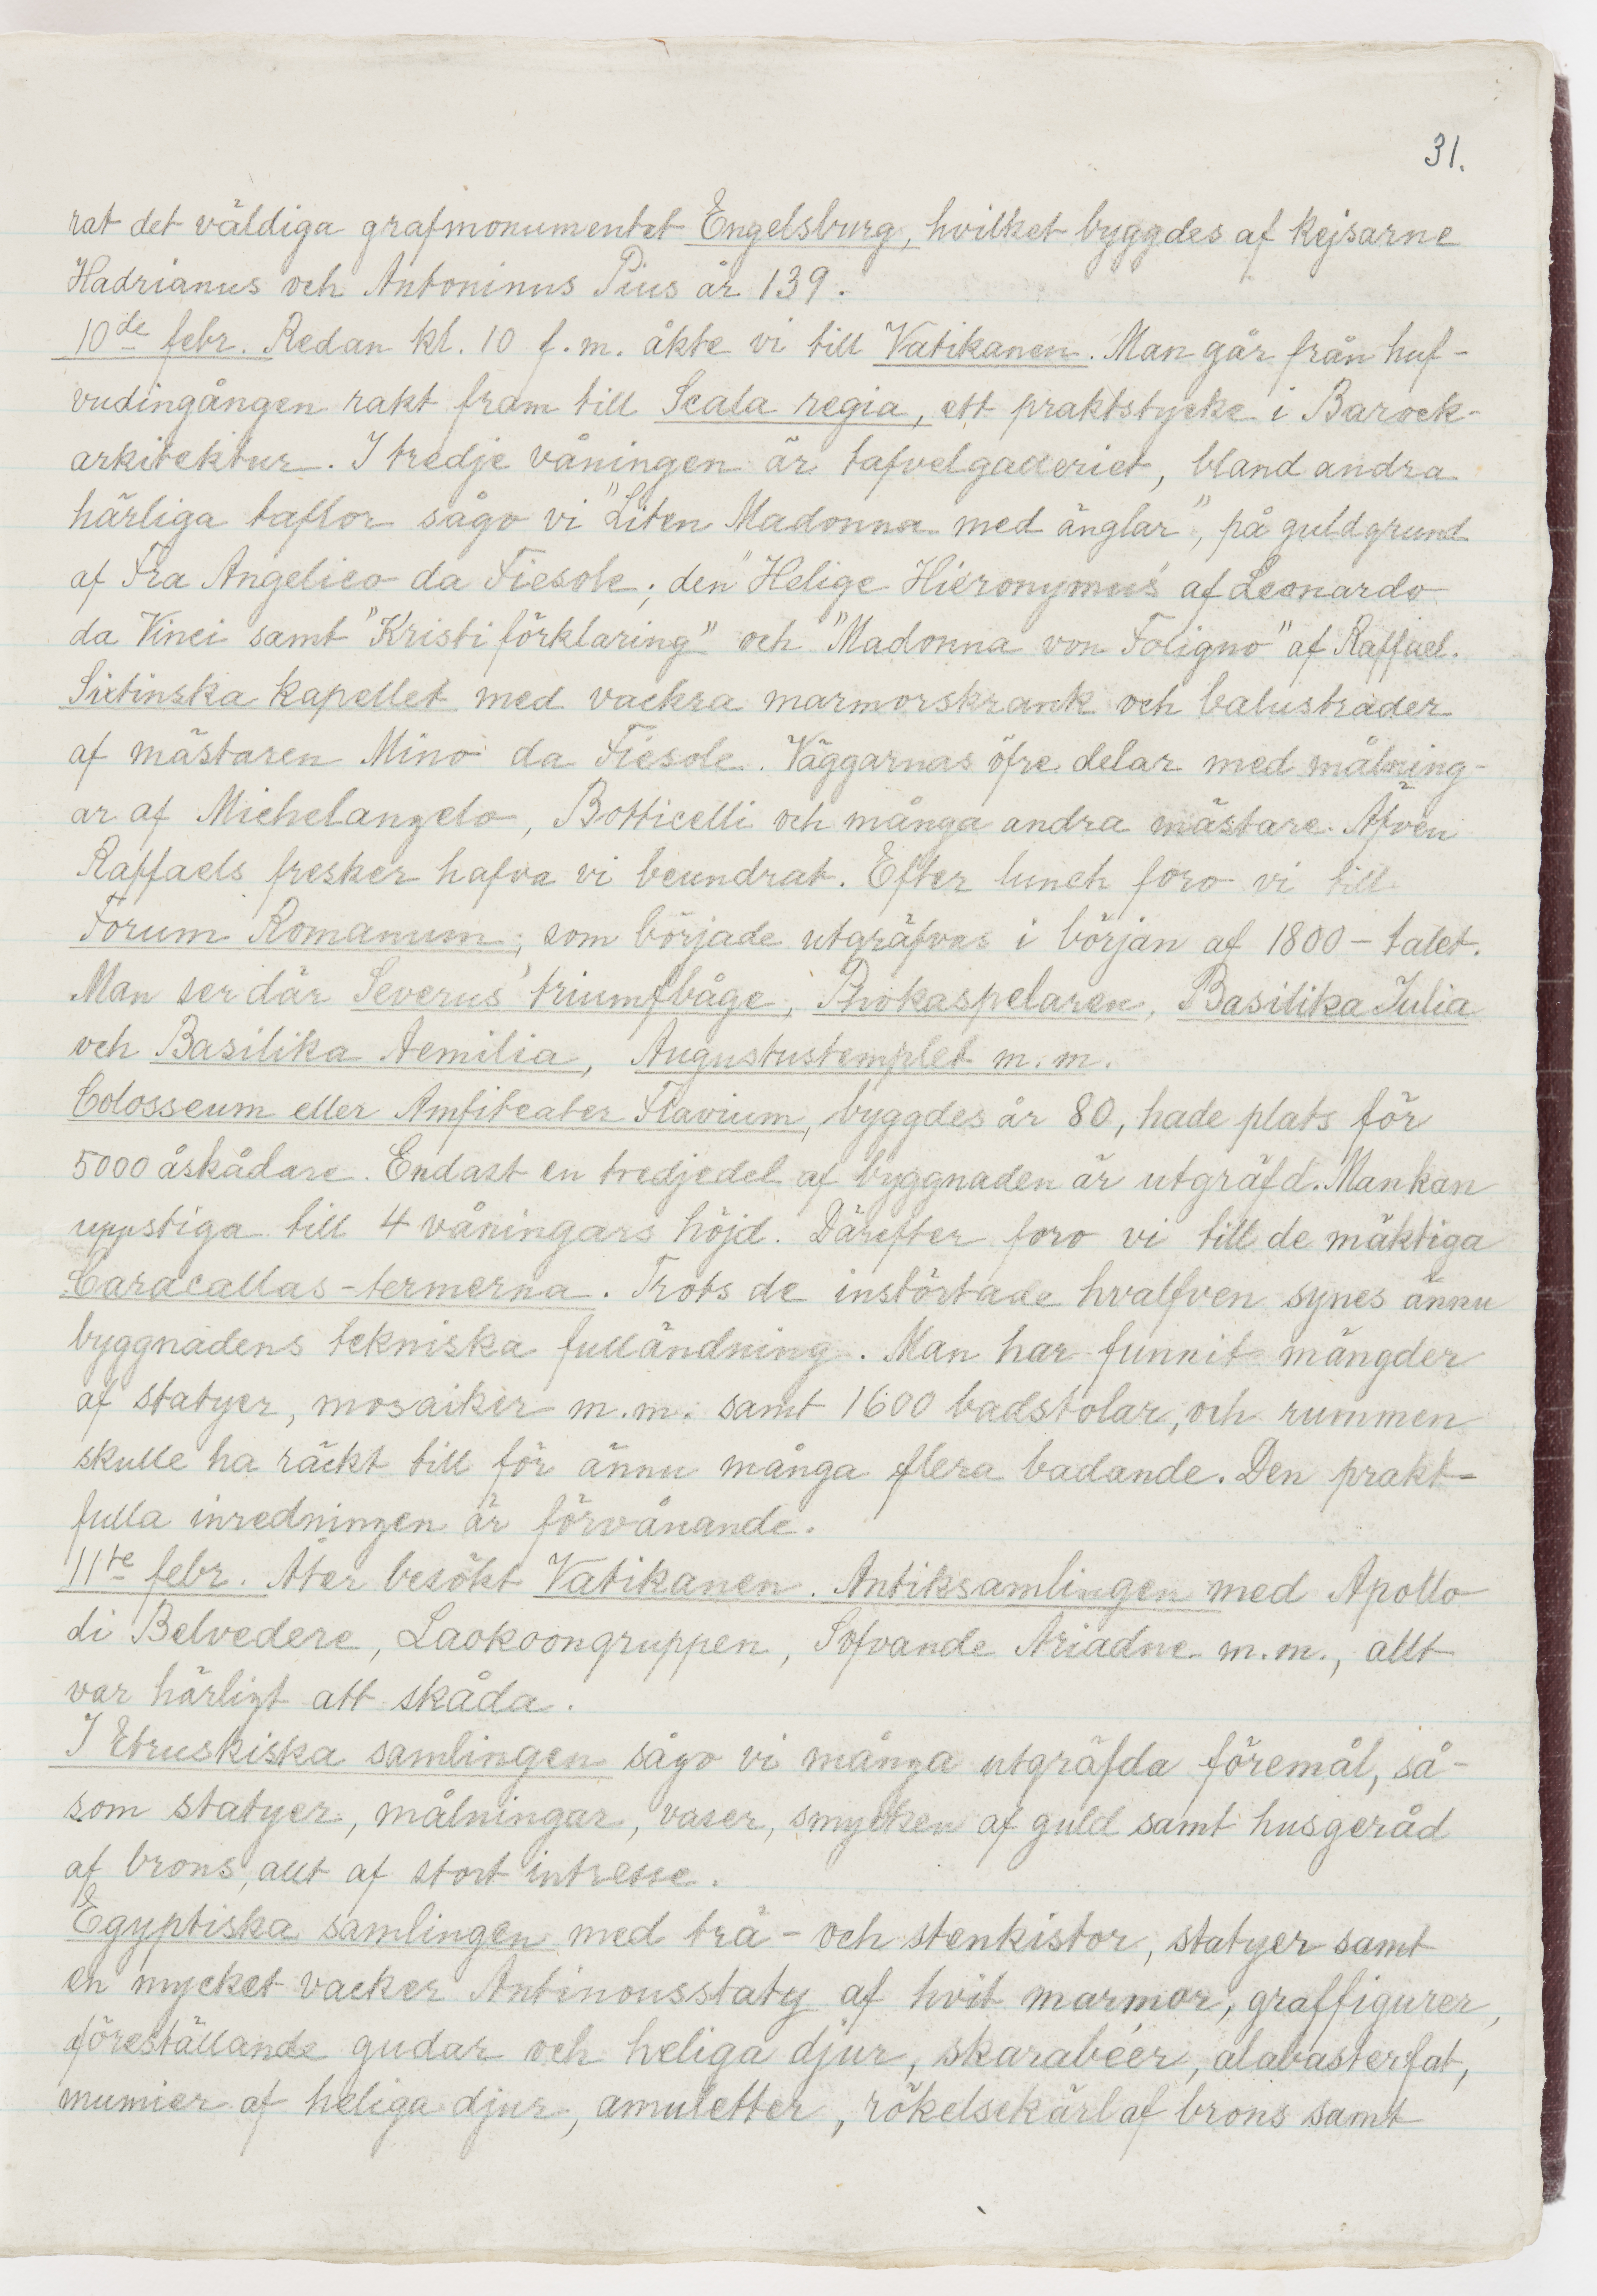 31.
rat det väldiga grafmonumentet Engelsburg, hvilket byggdes af kejsarne
Hadrianus och Antoninus Pius år 139.
10de febr. Redan kl. 10 f.m. åkte vi till Vatikanen. Man går från huf-
vudingången rakt fram till Scala regia, ett praktstycke i Barock-
arkitektur. I tredje våningen är tafvelgalleriet, bland andra
härliga taflor sågo vi "Liten Madonna med änglar", på guldgrund
af Fra Angelico da Fiesole; den "Helige Hieronymus" af Leonardo
da Vinci samt "Kristi förklaring" och "Madonna von Foligno" af Raffael.
Sixtinska kapellet med vackra marmorskrank och balustrader
af mästaren Mino da Fiesole. Väggarnas öfre delar med målning-
ar af Michelangelo, Botticelli och många andra mästare. Äfven
Raffaels fresker hafva vi beundrat. Efter lunch foro vi till
Forum Romanum, som började utgräfvas i början af 1800-talet.
Man ser där Severus' triumfbåge, Phokaspelaren, Basilika Julia
och Basilika Aemilia, Augustustemplet m.m.
Colosseum eller Amfiteater Flavium, byggdes år 80, hade plats för
5000 åskådare. Endast en tredjedel af byggnaden är utgräfd. Man kan
uppstiga till 4 våningars höjd. Därefter foro vi till de mäktiga
Caracallas-termerna. Trots de instörtade hvalfven synes ännu
byggnadens tekniska fulländning. Man har funnit mängder
af statyer, mosaiker m.m. samt 1600 badstolar, och rummen
skulle ha räckt till för ännu många flera badande. Den prakt-
fulla inredningen är förvånande.
11te febr. Åter besökt Vatikanen. Antiksamlingen med Apollo
di Belvedere, Laokoongruppen, Sofvande Ariadne m.m., allt
var härligt att skåda.
I Etruskiska samlingen sågo vi många utgräfda föremål, så-
som statyer, målningar, vaser, smycken af guld samt husgeråd
af brons, allt af stort intresse.
Egyptiska samlingen med trä- och stenkistor, statyer samt
en mycket vacker Antinousstaty af hvit marmor, graffigurer,
föreställande gudar och heliga djur, skarabéer, alabasterfat,
mumier af heliga djur, amuletter, rökelsekärl af brons samt